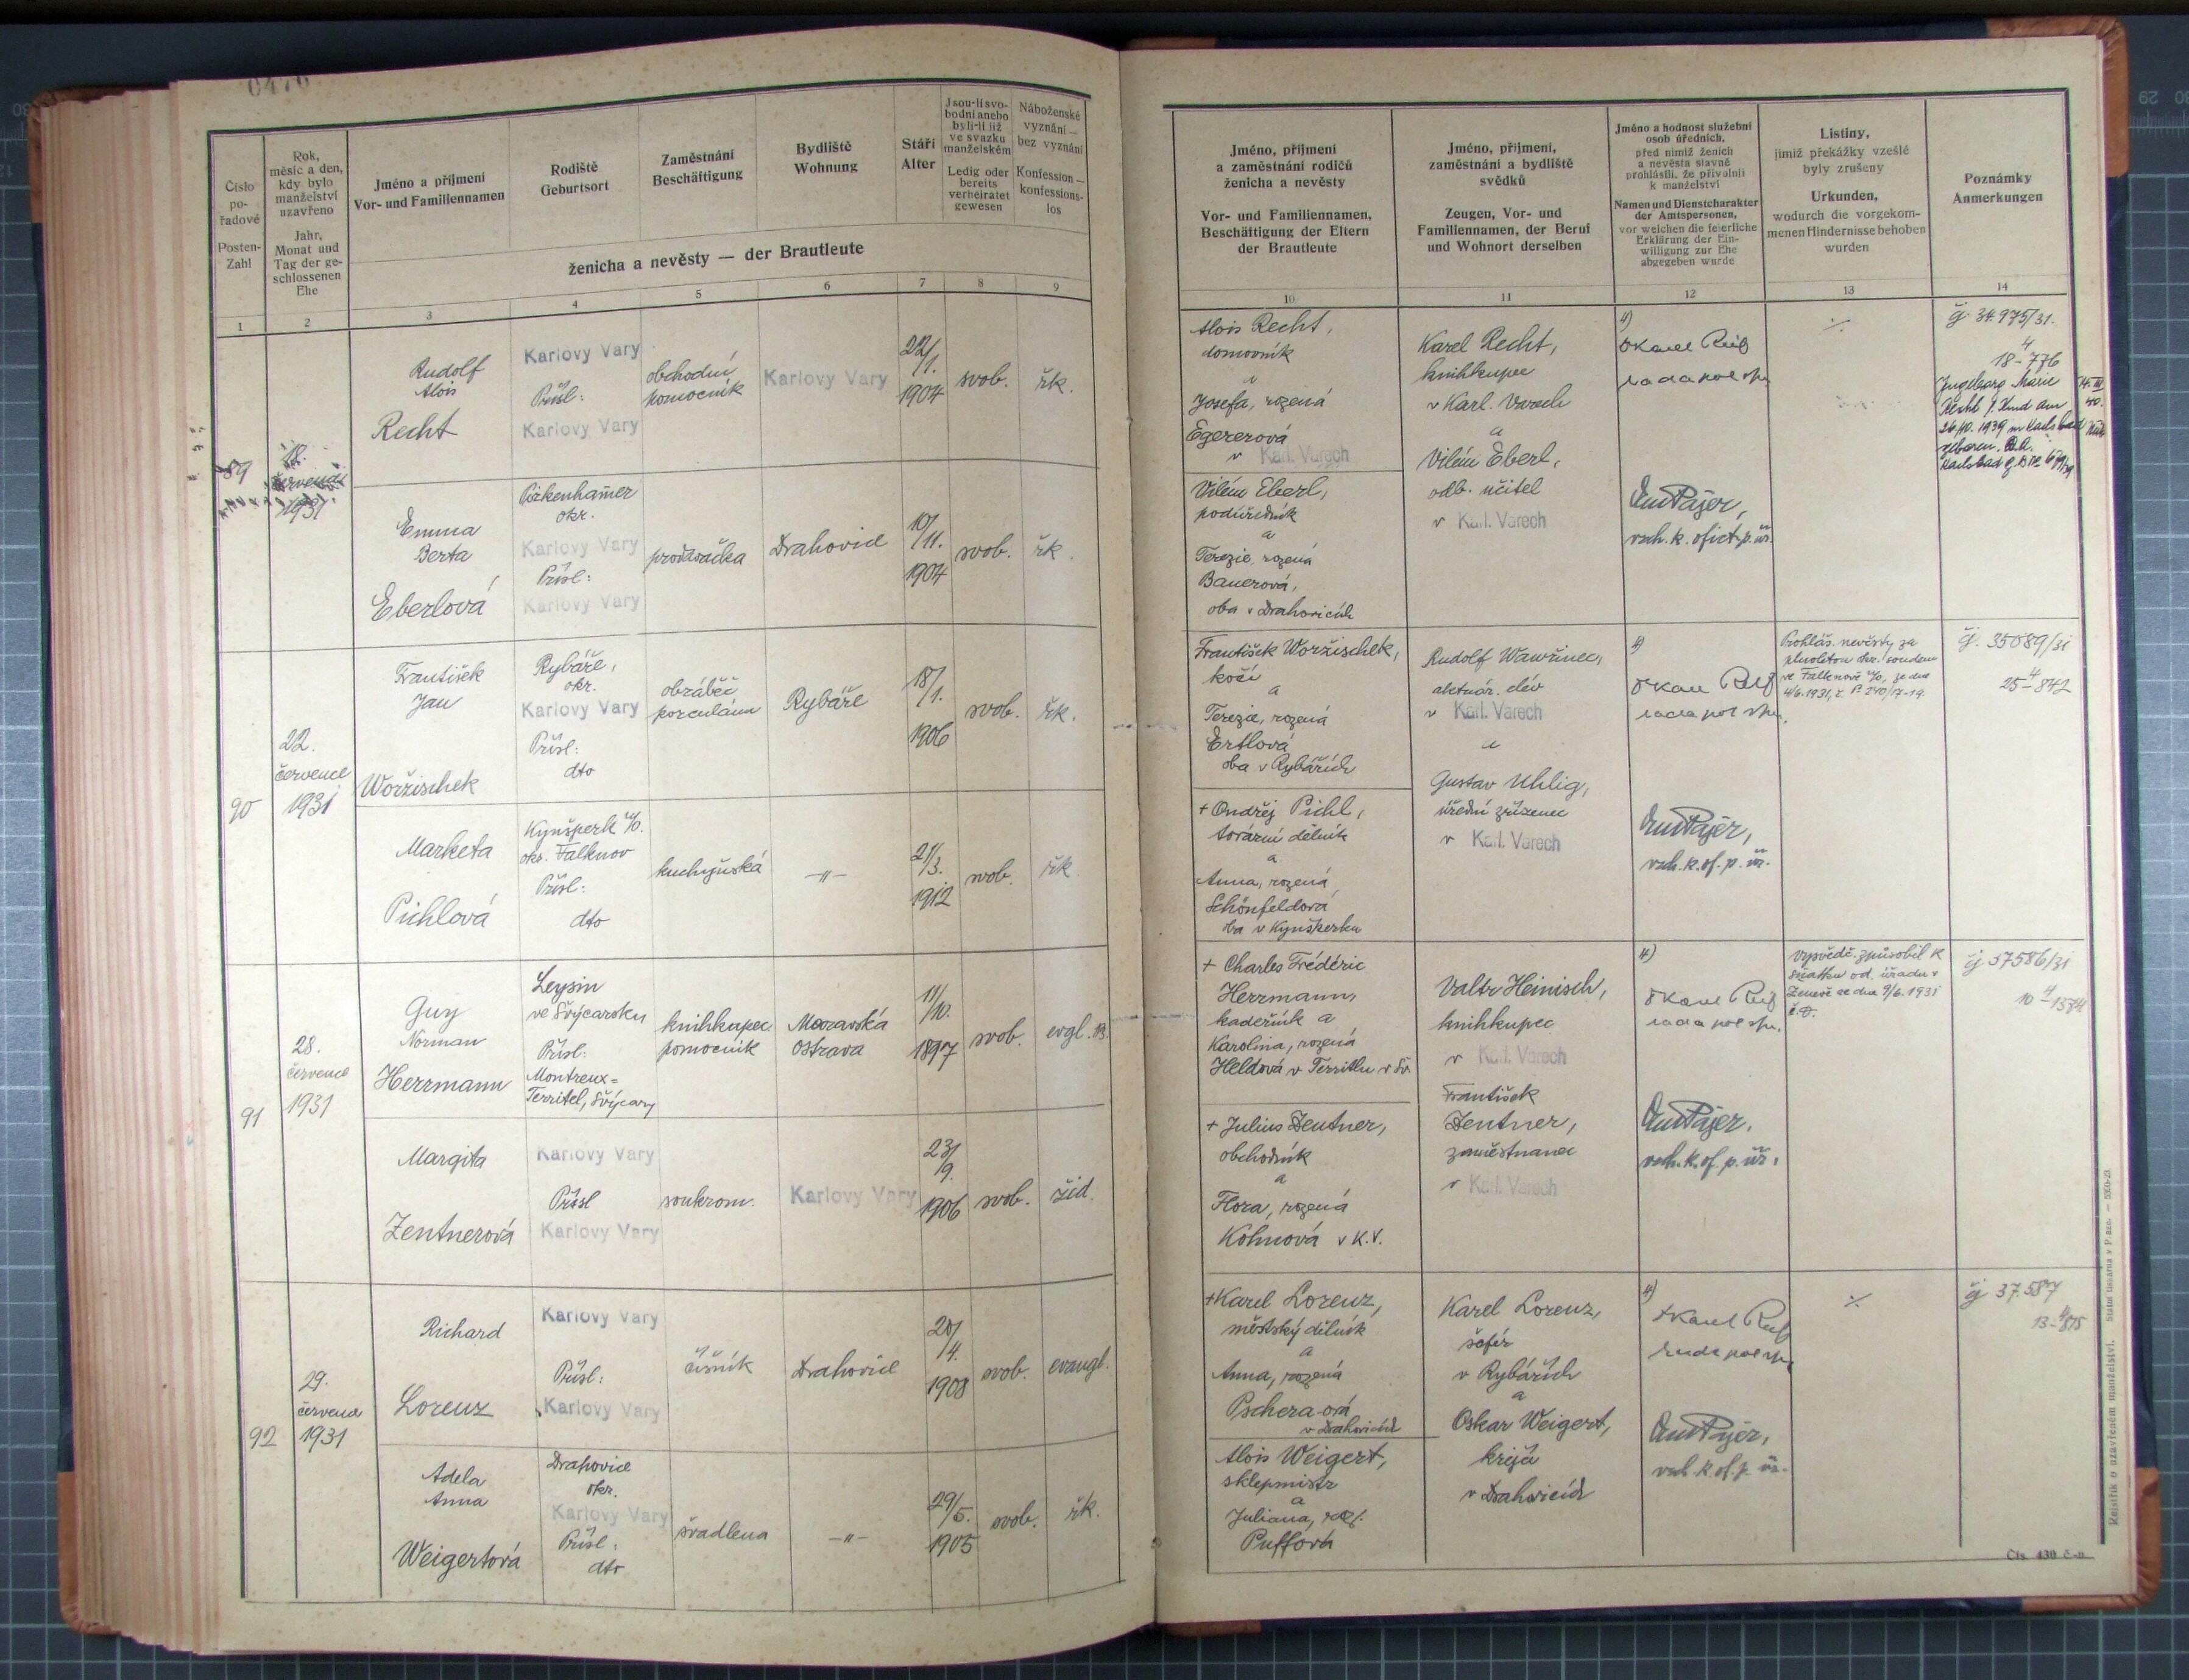 Číslo
po-
řadové
Posten-
Zahl
Rok,
měsíc a den,
kdy bylo
manželství
uzavřeno
Jahr,
Monat und
Tag der ge-
schlossenen
Ehe
Jméno a příjmení
Vor- und Familiennamen
Rodiště
Geburtsort
Zaměstnání
Beschäftigung
Bydliště
Wohnung
Stáří
Alter
Jsou-li svo-
bodni anebo
byli-li již
ve svazku
manželském
Ledig oder
bereits
verheiratet
gewesen
Náboženské
vyznání —
bez vyznání
Konfession —
konfessions-
los
ženicha a nevěsty — der Brautleute
1
2
3
4
5
6
7
8
9
89
18.
července
1931
Rudolf
Alois
Recht
Karlovy Vary
Přísl:
Karlovy Vary
obchodní
pomocník
Karlovy Vary
22/
/1.
1904
svob.
řk.
Emma
Berta
Eberlová
Pirkenhamer
okr.
Karlovy Vary
Přísl:
Karlovy Vary
prodavačka
Drahovice
10/
/11.
1904
svob.
řk.
90
22.
července
1931
František
Jan
Woržischek
Rybáře,
okr.
Karlovy Vary
Přísl:
dto
obráběč
porculánu
Rybáře
18/
/1.
1906
svob.
řk.
Marketa
Pichlová
Kynšperk n/O.
okr. Falknov
Přísl:
dto
kuchyňská
-"-
21/
/3.
1912
svob.
řk
91
28.
července
1931
Guy
Norman
Herrmann
Leysin
ve Švýcarsku
Přísl:
Montreux-
Territel, Švýcary
knihkupec.
pomocník
Moravská
Ostrava
11/
/10.
1897
svob.
evgl.
Margita
Zentnerová
Karlovy Vary
Přísl
Karlovy Vary
soukrom.
Karlovy Vary
23/
/9.
1906
svob.
žid.
92
29.
července
1931
Richard
Lorenz
Karlovy Vary
Přísl:
Karlovy Vary
číšník
Drahovice
20/
/4.
1908
svob.
evangl.
Adela
Anna
Weigertová
Drahovice
okr.
Karlovy Vary
Přísl:
dto
švadlena
-"-
29/
/5.
1905
svob.
řk.
Jméno, příjmení
a zaměstnání rodičů
ženicha a nevěsty
Vor- und Familiennamen,
Beschäftigung der Eltern
der Brautleute
Jméno, příjmení,
zaměstnání a bydliště
svědků
Zeugen, Vor- und
Familiennamen, der Beruf
und Wohnort derselben
Jméno a hodnost služební
osob úředních,
před nimiž ženich
a nevěsta slavně
prohlásili, že přivolují
k manželství
Namen und Dienstcharakter
der Amtspersonen,
vor welchen die feierliche
Erklärung der Ein-
willigung zur Ehe
abgegeben wurde
Listiny,
jimiž překážky vzešlé
byly zrušeny
Urkunden,
wodurch die vorgekom-
menen Hindernisse behoben
wurden
Poznámky
Anmerkungen
10
11
12
13
14
Alois Recht,
domovník
a
Josefa, rozená
Egererová
v Karl. Varech
Vilém Eberl,
podúředník
a
Terezie, rozená
Bauerová,
oba v Drahovicích
Karel Recht,
knihkupec
v Karl. Varech
a
Vilém Eberl,
odb. učitel
v Karl. Varech
4)
Pajer,
vrch. k. ofict. p. úř.
·/.
čj. 34.975/31.
4
18-776
Ingeborg Marie
Recht 1. Kind am
26/10. 1939 in Karlsbad
geboren.
František Woržischek,
kočí
a
Terezie, rozená
Ertlová
oba v Rybářích
+ Ondřej Pichl,
tovární dělník
a
Anna, rozená
Schönfeldová
oba v Kynšperku
Rudolf Wawřinec,
aktuár. elév
v Karl. Varech
a
Gustav Uhlig,
úřední zřízenec
v Karl. Varech
4)
Pajer,
vrch. k. of. p. úř.
Prohláš. nevěsty za
plnoletou okr. soudem
ve Falknově n/O, ze dne
4/6. 1931, č. P. 240/17-19.
čj. 35089/31
4
25-842
+ Charles Frédéric
Herrmann,
kadeřník a
Karolina, rozená
Heldová v Territlu v Šv.
+ Julius Zentner,
obchodník
a
Flora, rozená
Kohnová v K.V.
Valtr Heinisch,
knihkupec
v Karl. Varech
František
Zentner,
zaměstnanec
v Karl. Varech
4)
Pajer,
vrch. k. of. p. úř.
vysvědč. způsobil. k
sňatku od. úřadu v
Ženevě ze dne 9/6. 1931
čj 37586/31
+ Karel Lorenz,
městský dělník
a
Anna, rozená
Pschera-ová
v Drahovicích
Alois Weigert,
sklepmistr
a
Juliana, roz.
Puffová
Karel Lorenz,
šofér
v Rybářích
a
Oskar Weigert,
krejčí
v Drahovicích
4)
Pajer,
vrch. k. of. p. úř.
·/.
čj 37.587
Rejstřík o uzavřeném manželství.
Čís. 430 č-n